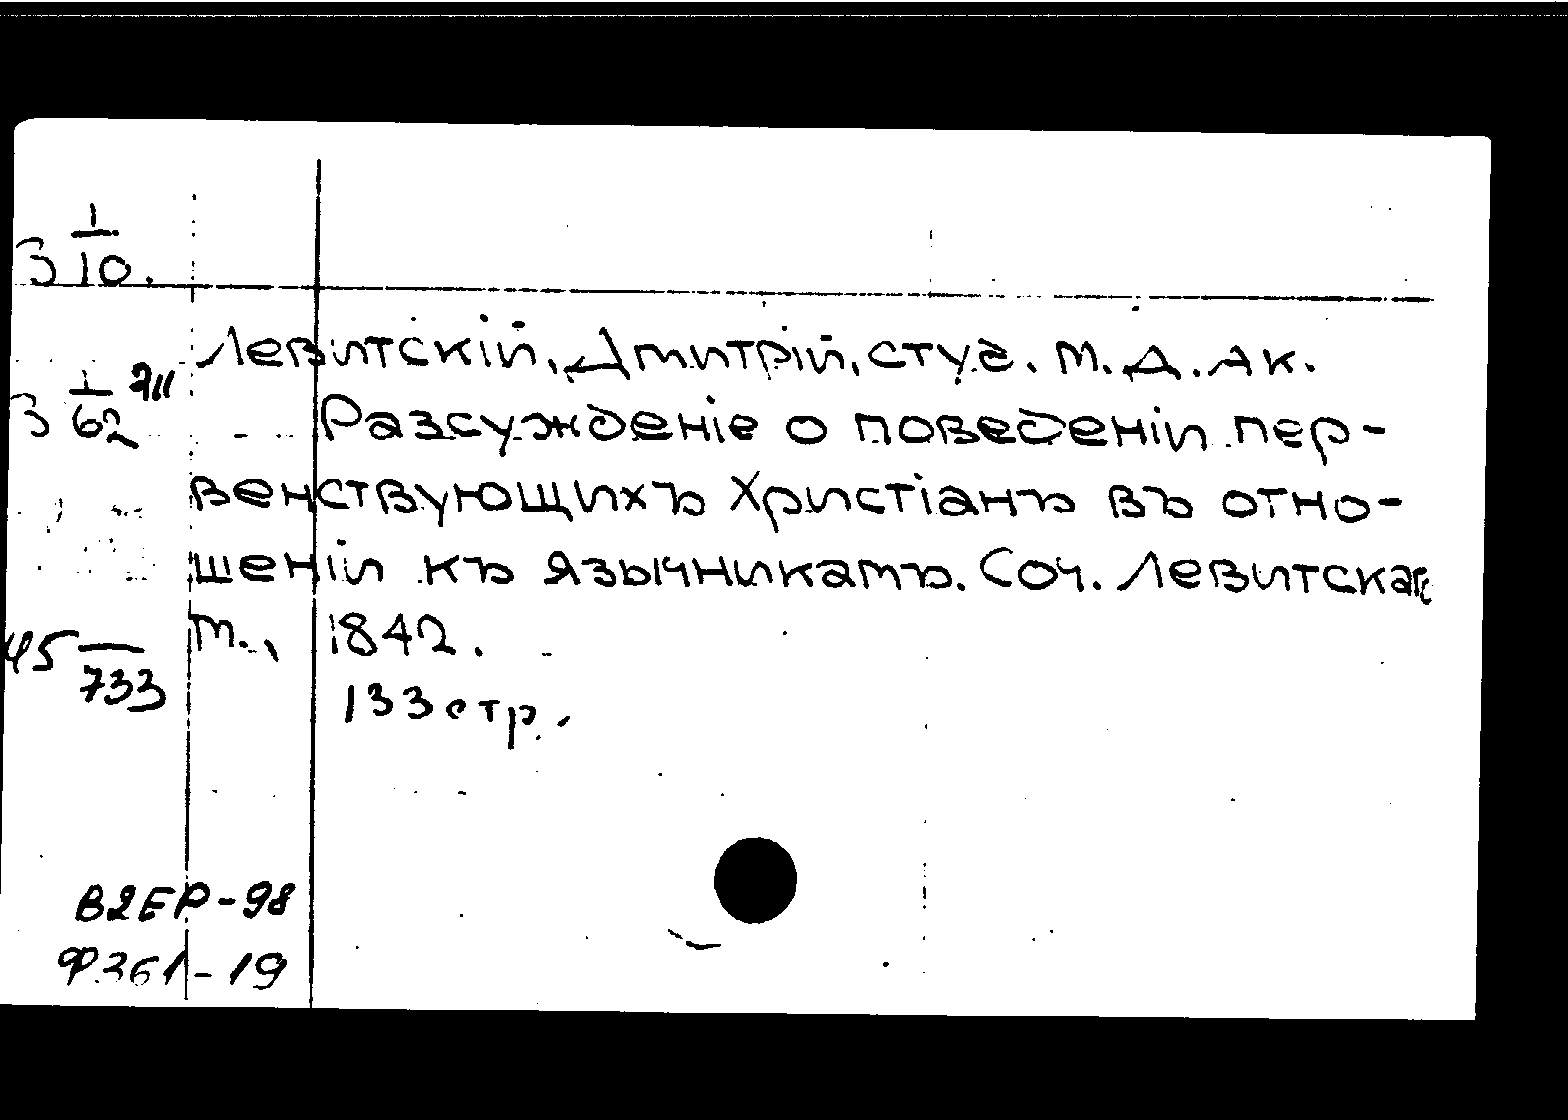 З 1/10.
Левитскій, Дмитрій, студ. М. Д. Ак.
З 1/62
Разсужденіе о поведеніи пер-
венствующихъ Христіанъ въ отно-
шеніи къ язычникамъ. Соч. Левитскаг
М., 1842.
45 /733
133 стр.
В2ЕР-98
Ф361-19